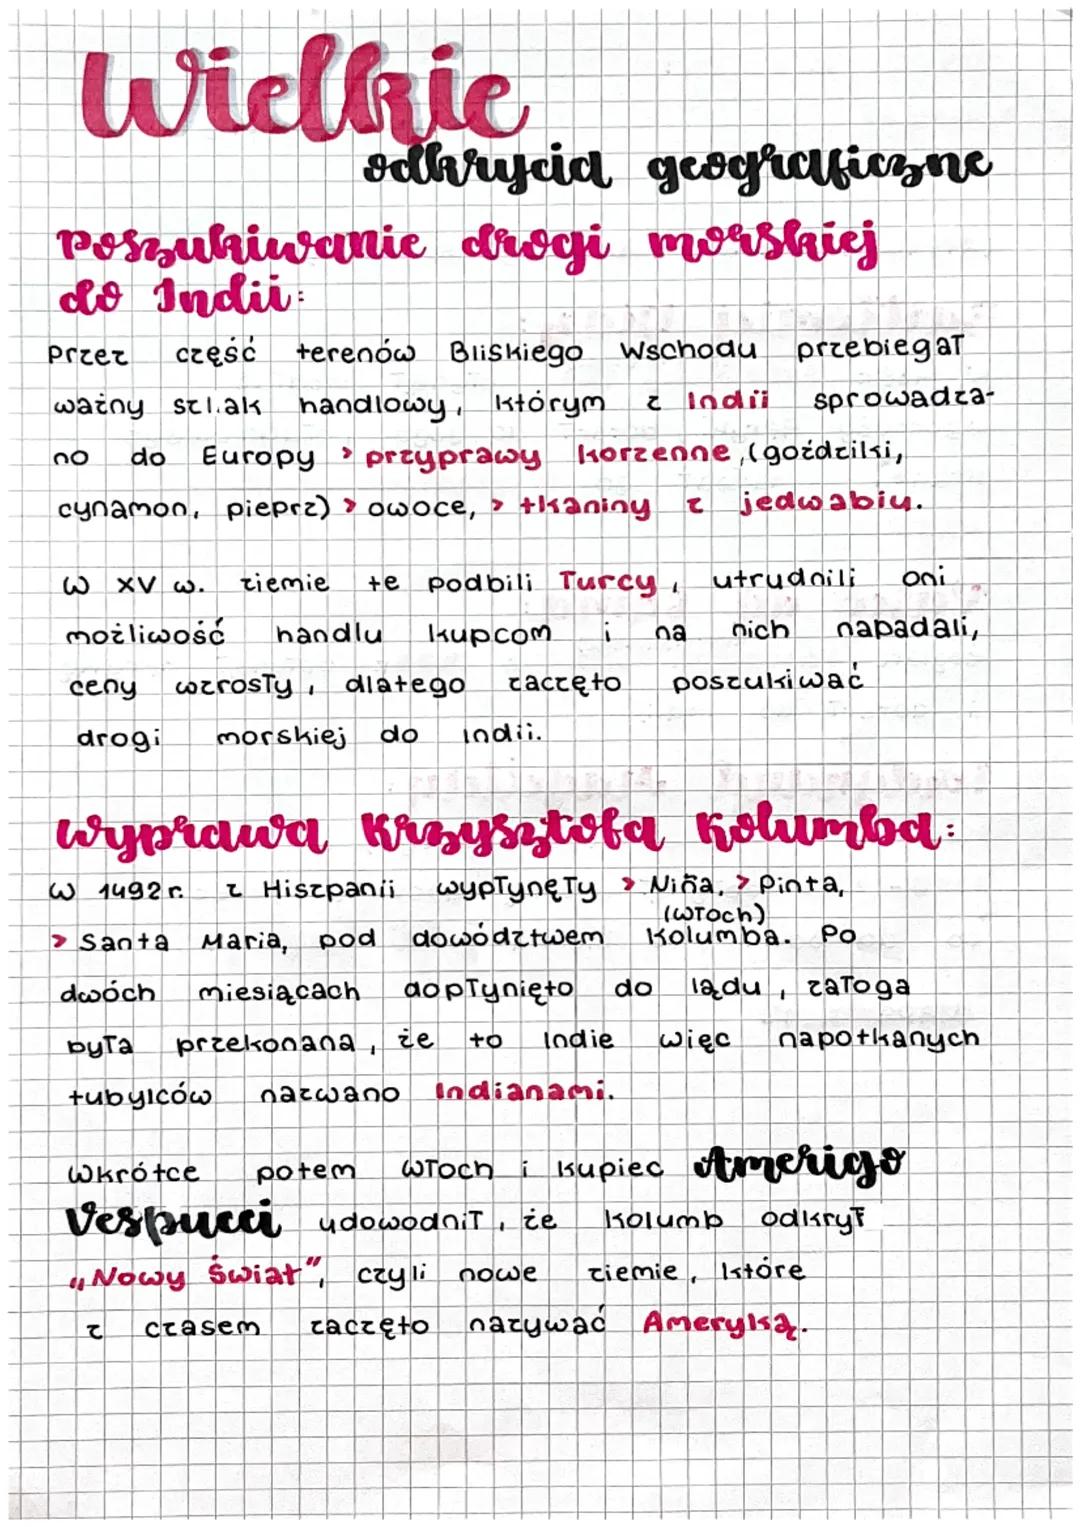 Wielkie
odkrycia geograficzne
Poszukiwanie drogi morskiej
do Indii:
Przez część terenów Bliskiego Wschodu przebiegał
ważny szlak handlowy, którym z Indii sprowadza-
no do Europy > przyprawy korzenne, (goździki,
cynamon, pieprz) > owoce, > tkaniny z jedwabiu.
W XV w. ziemie te podbili Turcy, utrudnili oni
możliwość handlu kupcom i na nich napadali,
ceny wzrosły, dlatego zaczęto poszukiwać
drogi morskiej do indii.
Wyprawa Krzysztofa Kolumba:
W 1492r. z Hiszpanii wypłynęły > Niña, > Pinta,
(Włoch)
> Santa Maria, pod dowództwem Kolumba. Po
dwóch miesiącach dopłynięto do lądu, załoga
była przekonana, że to Indie więc napotkanych
tubylców nazwano Indianami.
Wkrótce potem Włoch i kupiec Amerigo
Vespucci udowodnił, że Kolumb odkrył
„Nowy Świat", czyli nowe ziemie, które
z czasem zaczęto nazywać Ameryką.